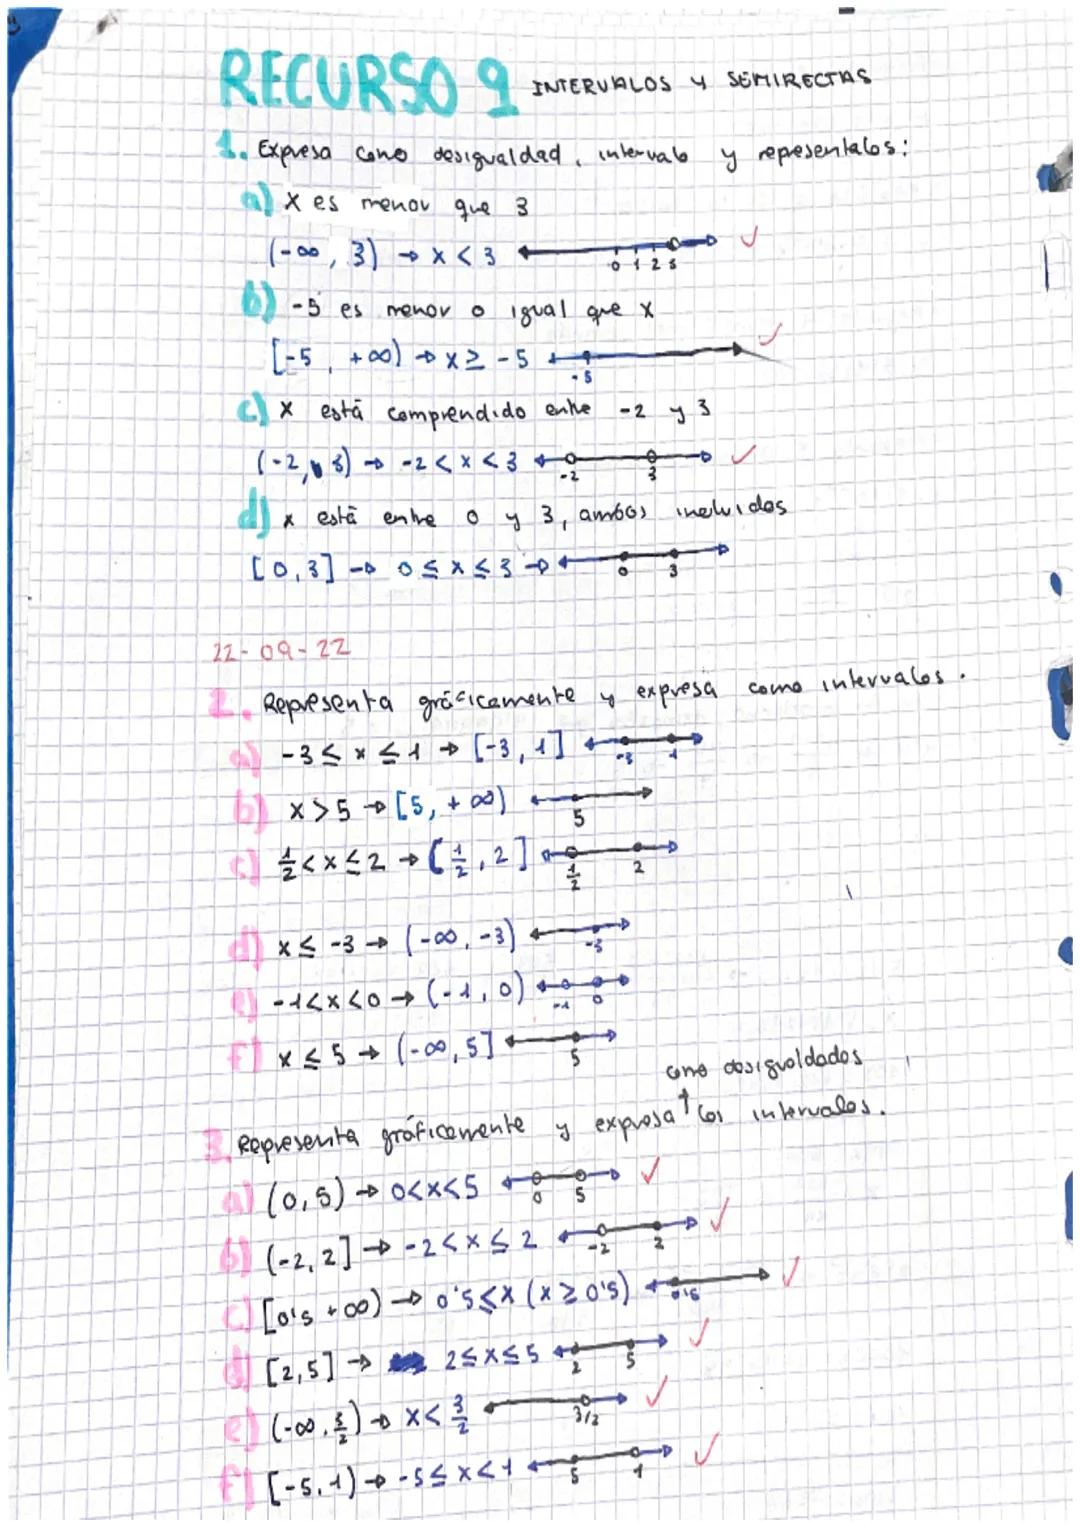 RECURSO 9 INTERVALOS Y SEMIRECTAS
1. Expresa como desigualdad, intervalo y represéntalos:
a) x es menor que 3
(-∞, 3) → x < 3
0 1 2 3
b) -5 es menor o igual que x
[-5, +∞) → x ≥ -5
-5
c) x está comprendido entre -2 y 3
(-2, 3) → -2 < x < 3
-2 3
d) x está entre 0 y 3, ambos incluidos
[0,3] → 0 ≤ x ≤ 3 →
0 3
22-09-22
2. Representa gráficamente y expresa como intervalos.
a) -3 ≤ x ≤ 1 → [-3, 1]
-3 1
b) x > 5 → [5, +∞)
5
c) 1/2 < x ≤ 2 → (1/2, 2]
1/2 2
d) x ≤ -3 → (-∞, -3)
-3
e) -1 < x < 0 → (-1, 0)
-1 0
f) x ≤ 5 → (-∞, 5]
5
como desigualdades
3. Representa gráficamente y expresa ↑ los intervalos.
a) (0, 5) → 0<x<5
0 5
b) (-2, 2] → -2 < x ≤ 2
-2 2
c) [0'5 +∞) → 0'5 ≤ x (x ≥ 0'5)
0'5
d) [2,5] → 2 ≤ x ≤ 5
2 5
e) (-∞, 3/2) → x < 3/2
3/2
f) [-5, 1) → -5 ≤ x < 1
5 1